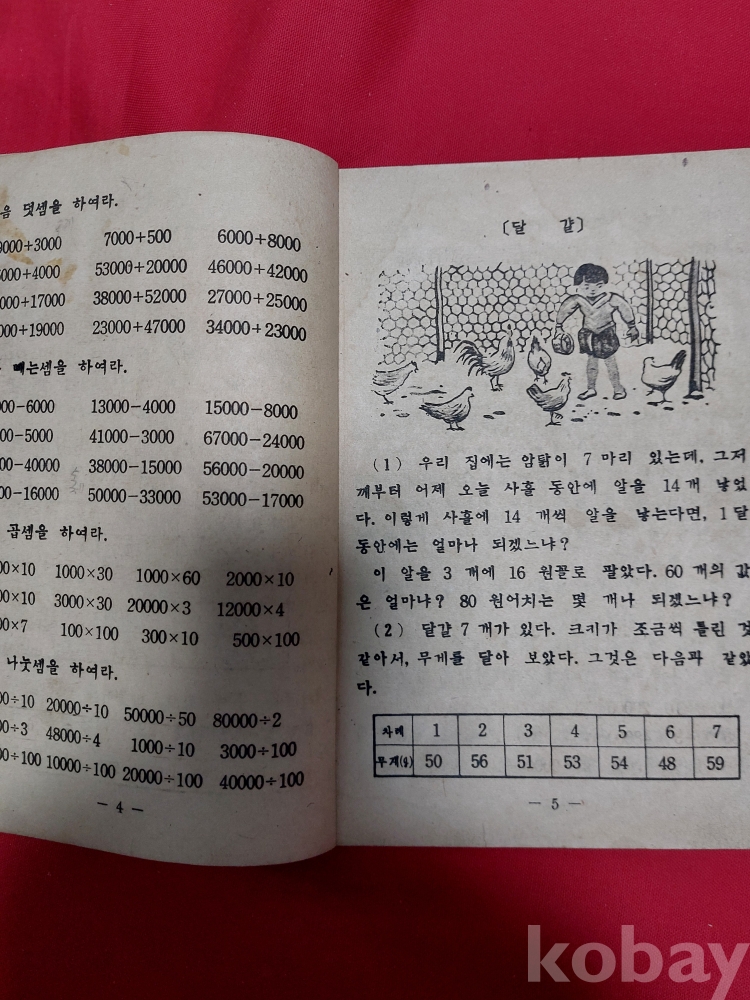 음 덧셈을 하여라.
000+3000 7000+500 6000+8000
000+4000 53000+20000 46000+42000
000+17000 38000+52000 27000+25000
000+19000 23000+47000 34000+23000
빼는셈을 하여라.
000-6000 13000-4000 15000-8000
00-5000 41000-3000 67000-24000
00-40000 38000-15000 56000-20000
00-16000 50000-33000 53000-17000
곱셈을 하여라.
00×10 1000×30 1000×60 2000×10
00×10 3000×30 20000×3 12000×4
00×7 100×100 300×10 500×100
나눗셈을 하여라.
00÷10 20000÷10 50000÷50 80000÷2
00÷3 48000÷4 1000÷10 3000÷100
00÷100 10000÷100 20000÷100 40000÷100
- 4 -
〔달 걀〕
(1) 우리 집에는 암탉이 7 마리 있는데, 그저
께부터 어제 오늘 사흘 동안에 알을 14개 낳았
다. 이렇게 사흘에 14 개씩 알을 낳는다면, 1달
동안에는 얼마나 되겠느냐?
이 알을 3 개에 16 원꼴로 팔았다. 60 개의 값
은 얼마냐? 80 원어치는 몇 개나 되겠느냐?
(2) 달걀 7 개가 있다. 크기가 조금씩 틀린 것
같아서, 무게를 달아 보았다. 그것은 다음과 같았
다.
차례 1 2 3 4 5 6 7
무게(g) 50 56 51 53 54 48 59
- 5 -
kobay